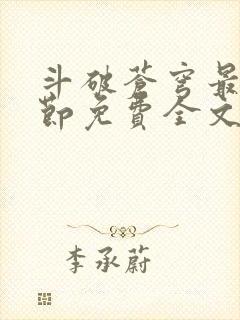 斗破苍穹最
节免费全文
李承蔚